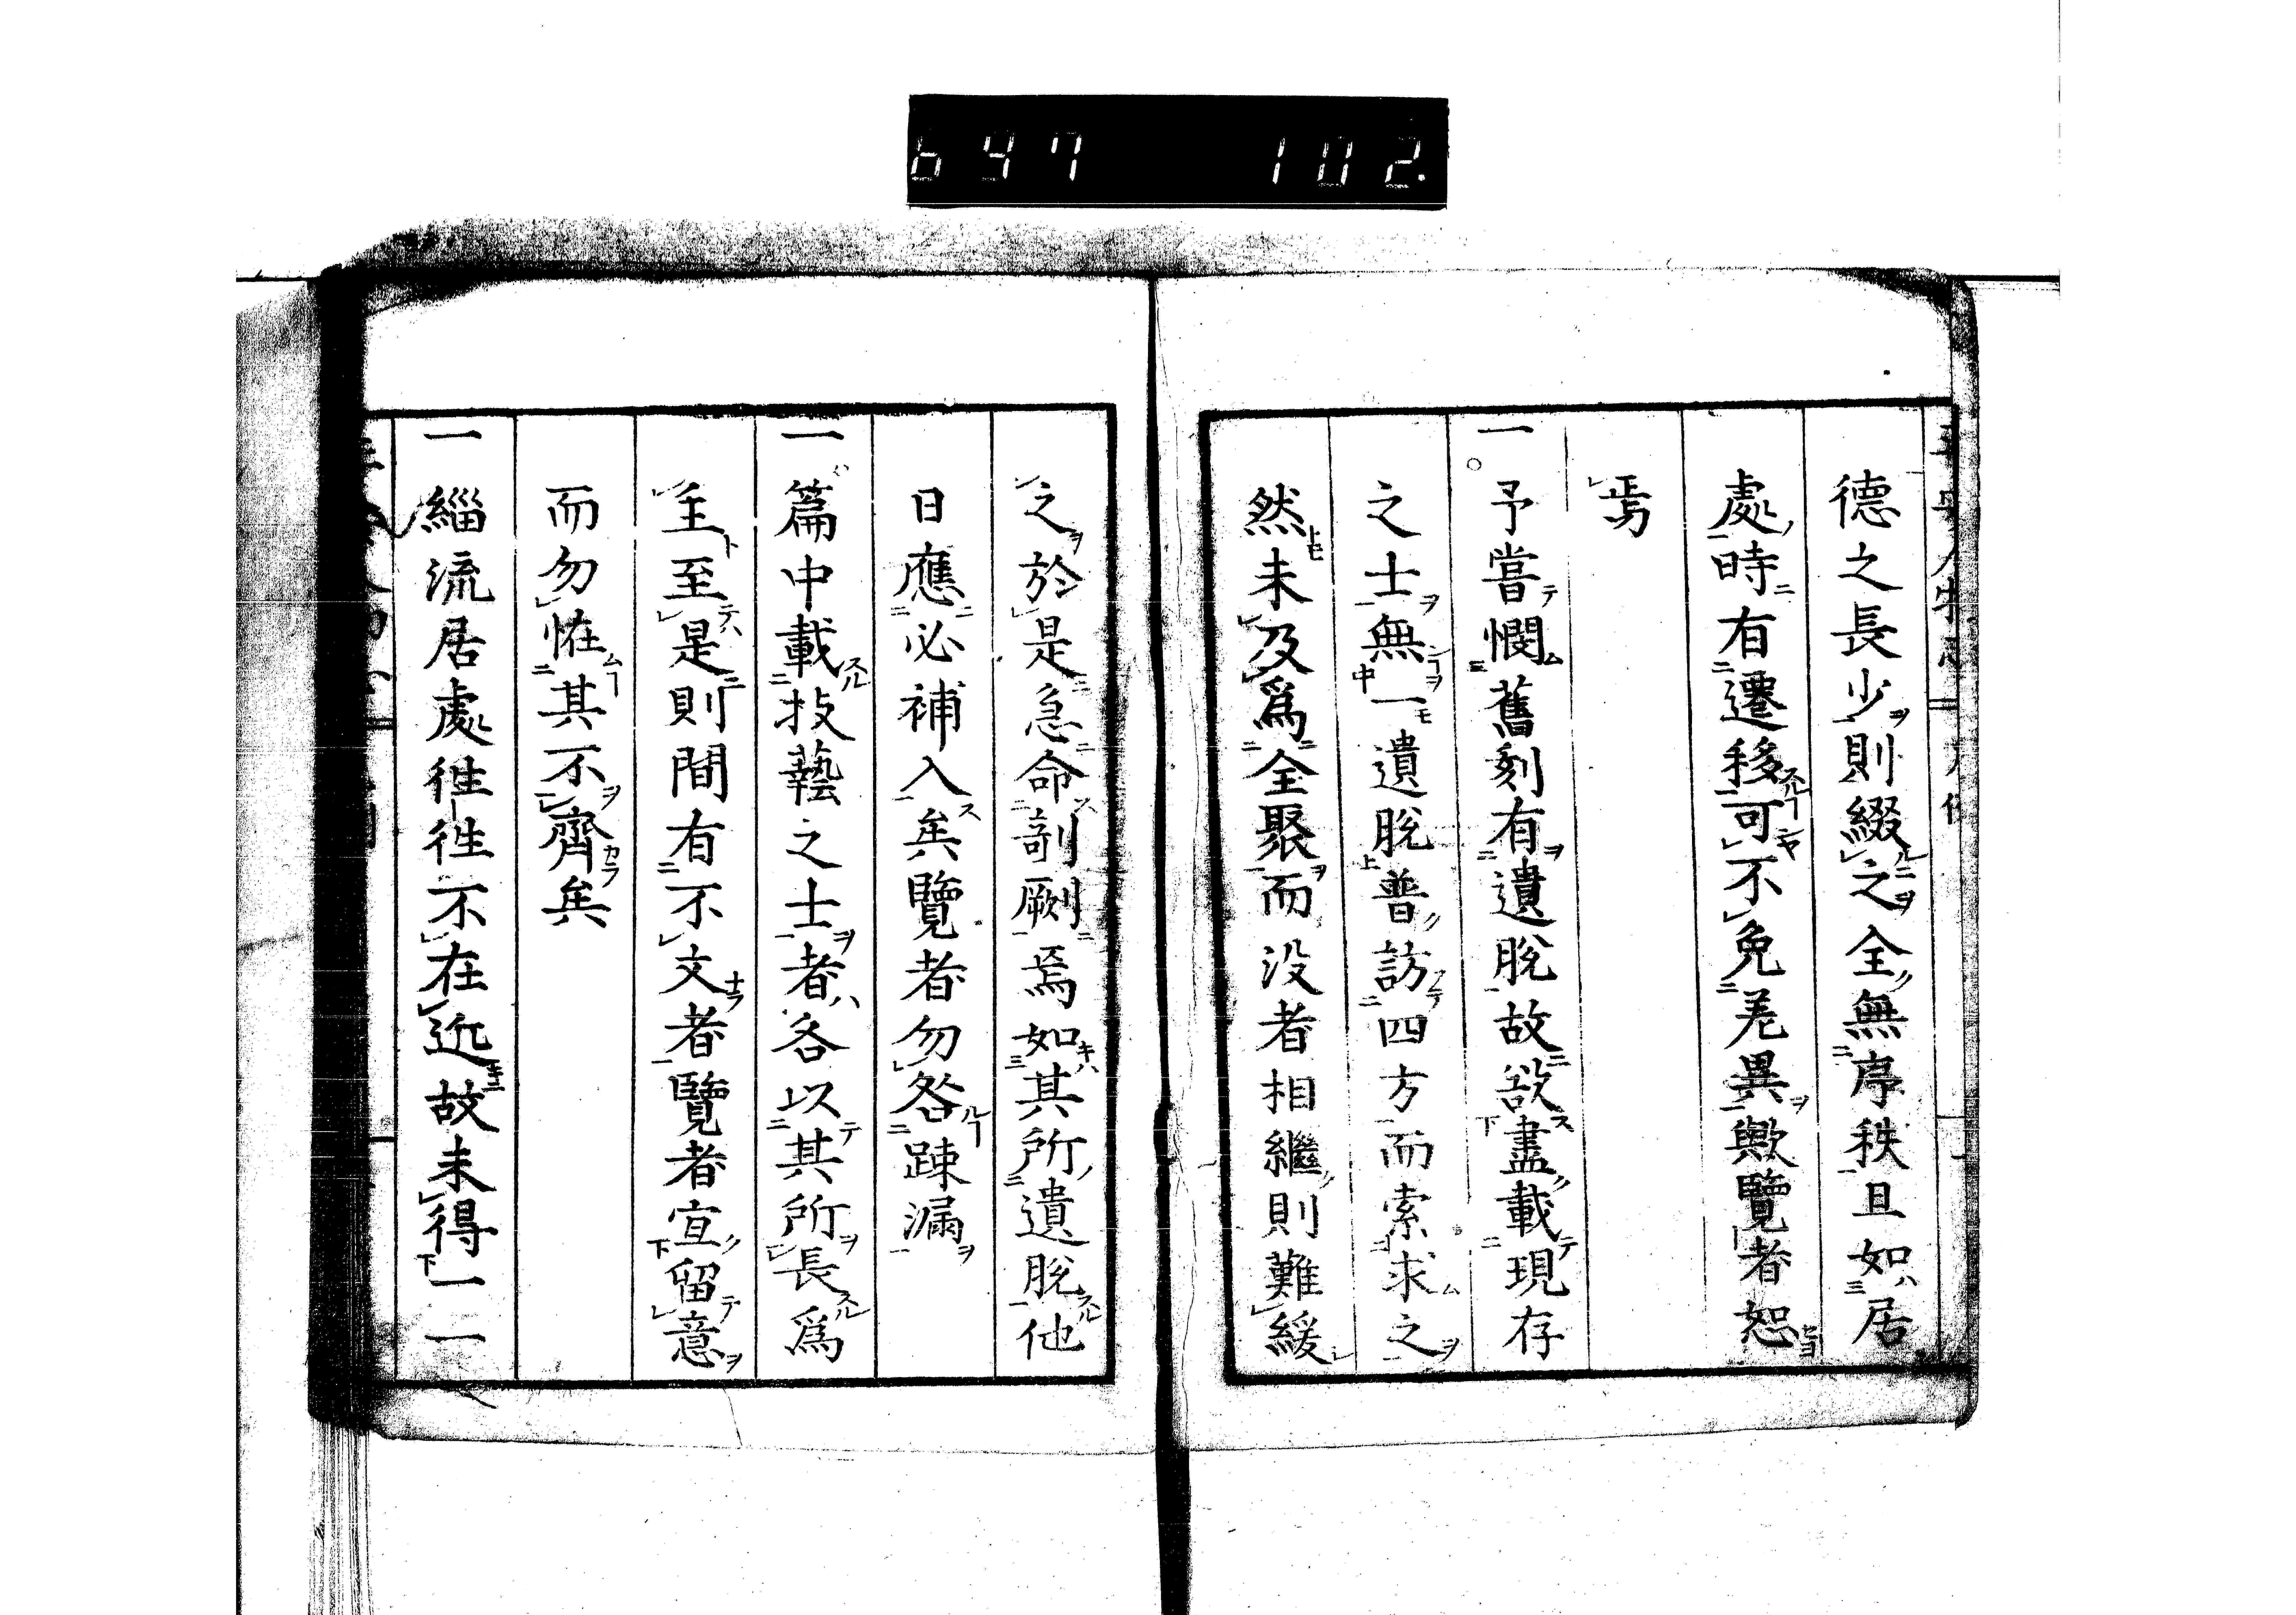 647 102.
德之長少則綴之全無序秩且如居
處時有遷移可不免差異歟覽者恕
焉
一予嘗憫舊刻有遺脫故欲盡載現存
之士無一遺脫普訪四方而索求之
然未及爲全聚而没者相繼則難緩
之於是急命剞劂焉如其所遺脫他
日應必補入矣覽者勿咎踈漏
一篇中載技藝之士者各以其所長爲
主至是則間有不文者覽者宜留意
而勿怪其不齊矣
一緇流居處徃徃不在近故未得一一